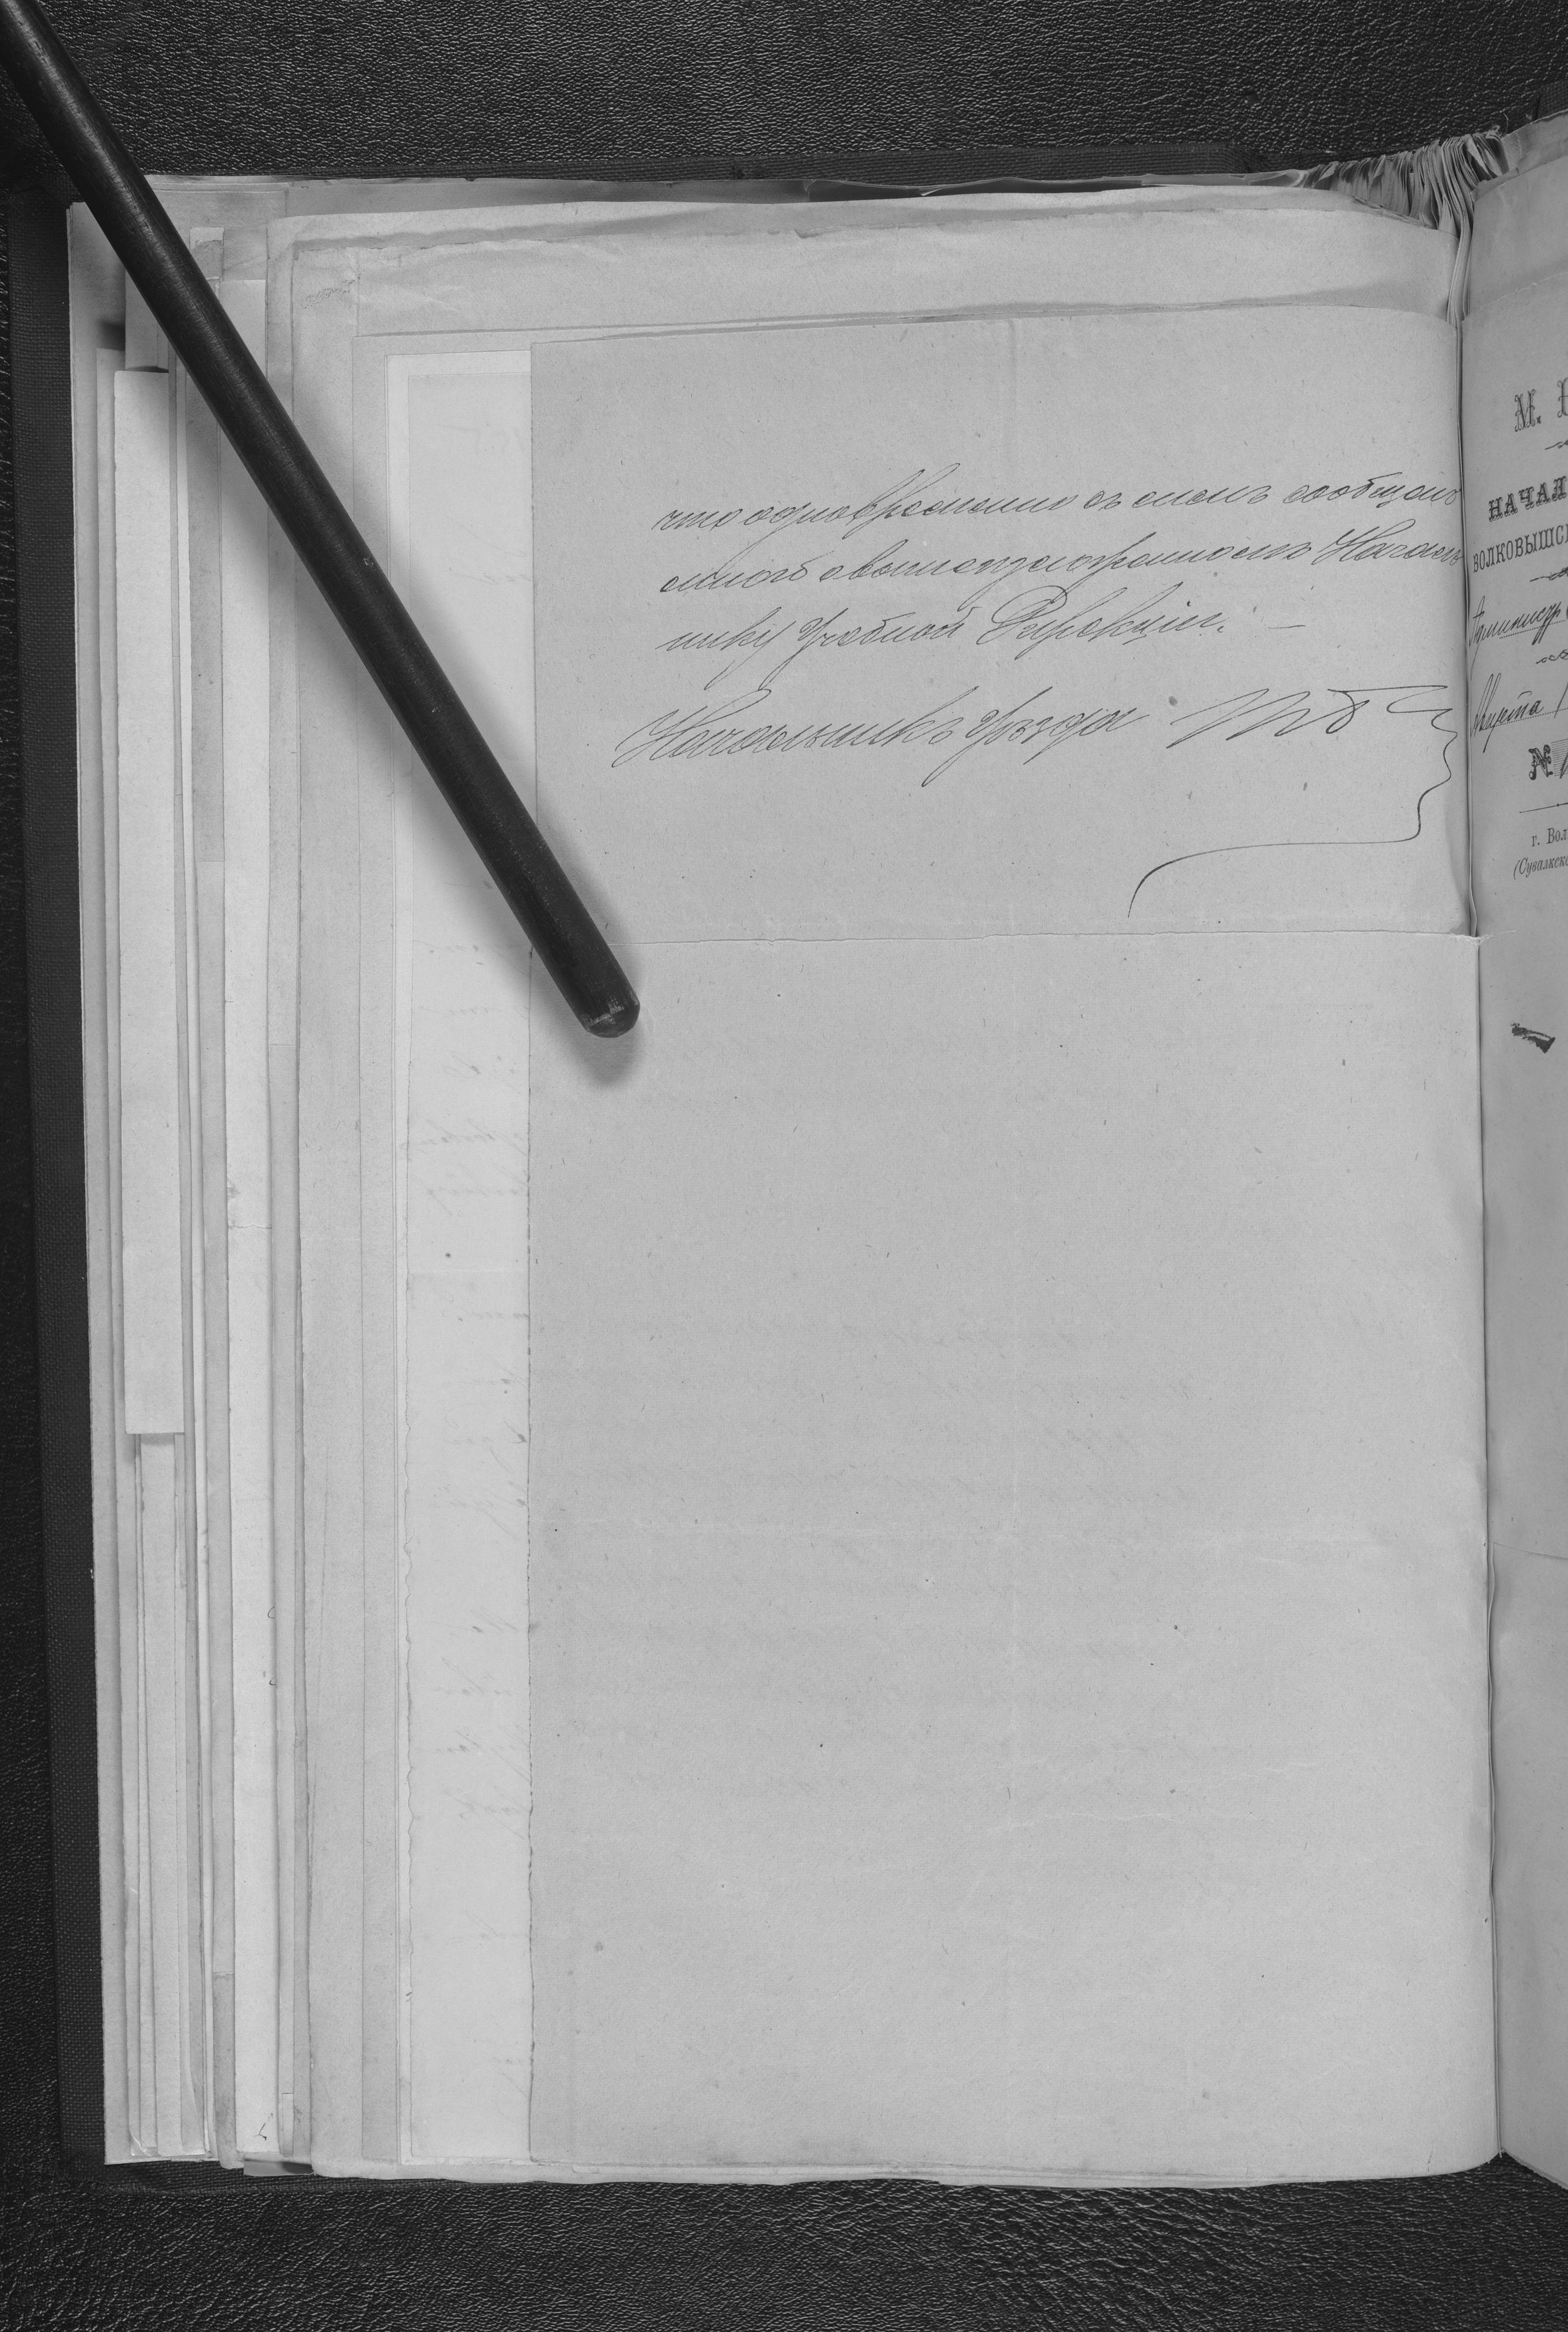 что одновременно съ симъ сообщено
мною о вышеизложенномъ Началь
нику Учебной Дирекціи. —
Начальникъ Уѣзда
М.
НАЧАЛ
ВОЛКОВЫШС
Августа
№
г. Вол
(Сувалкск